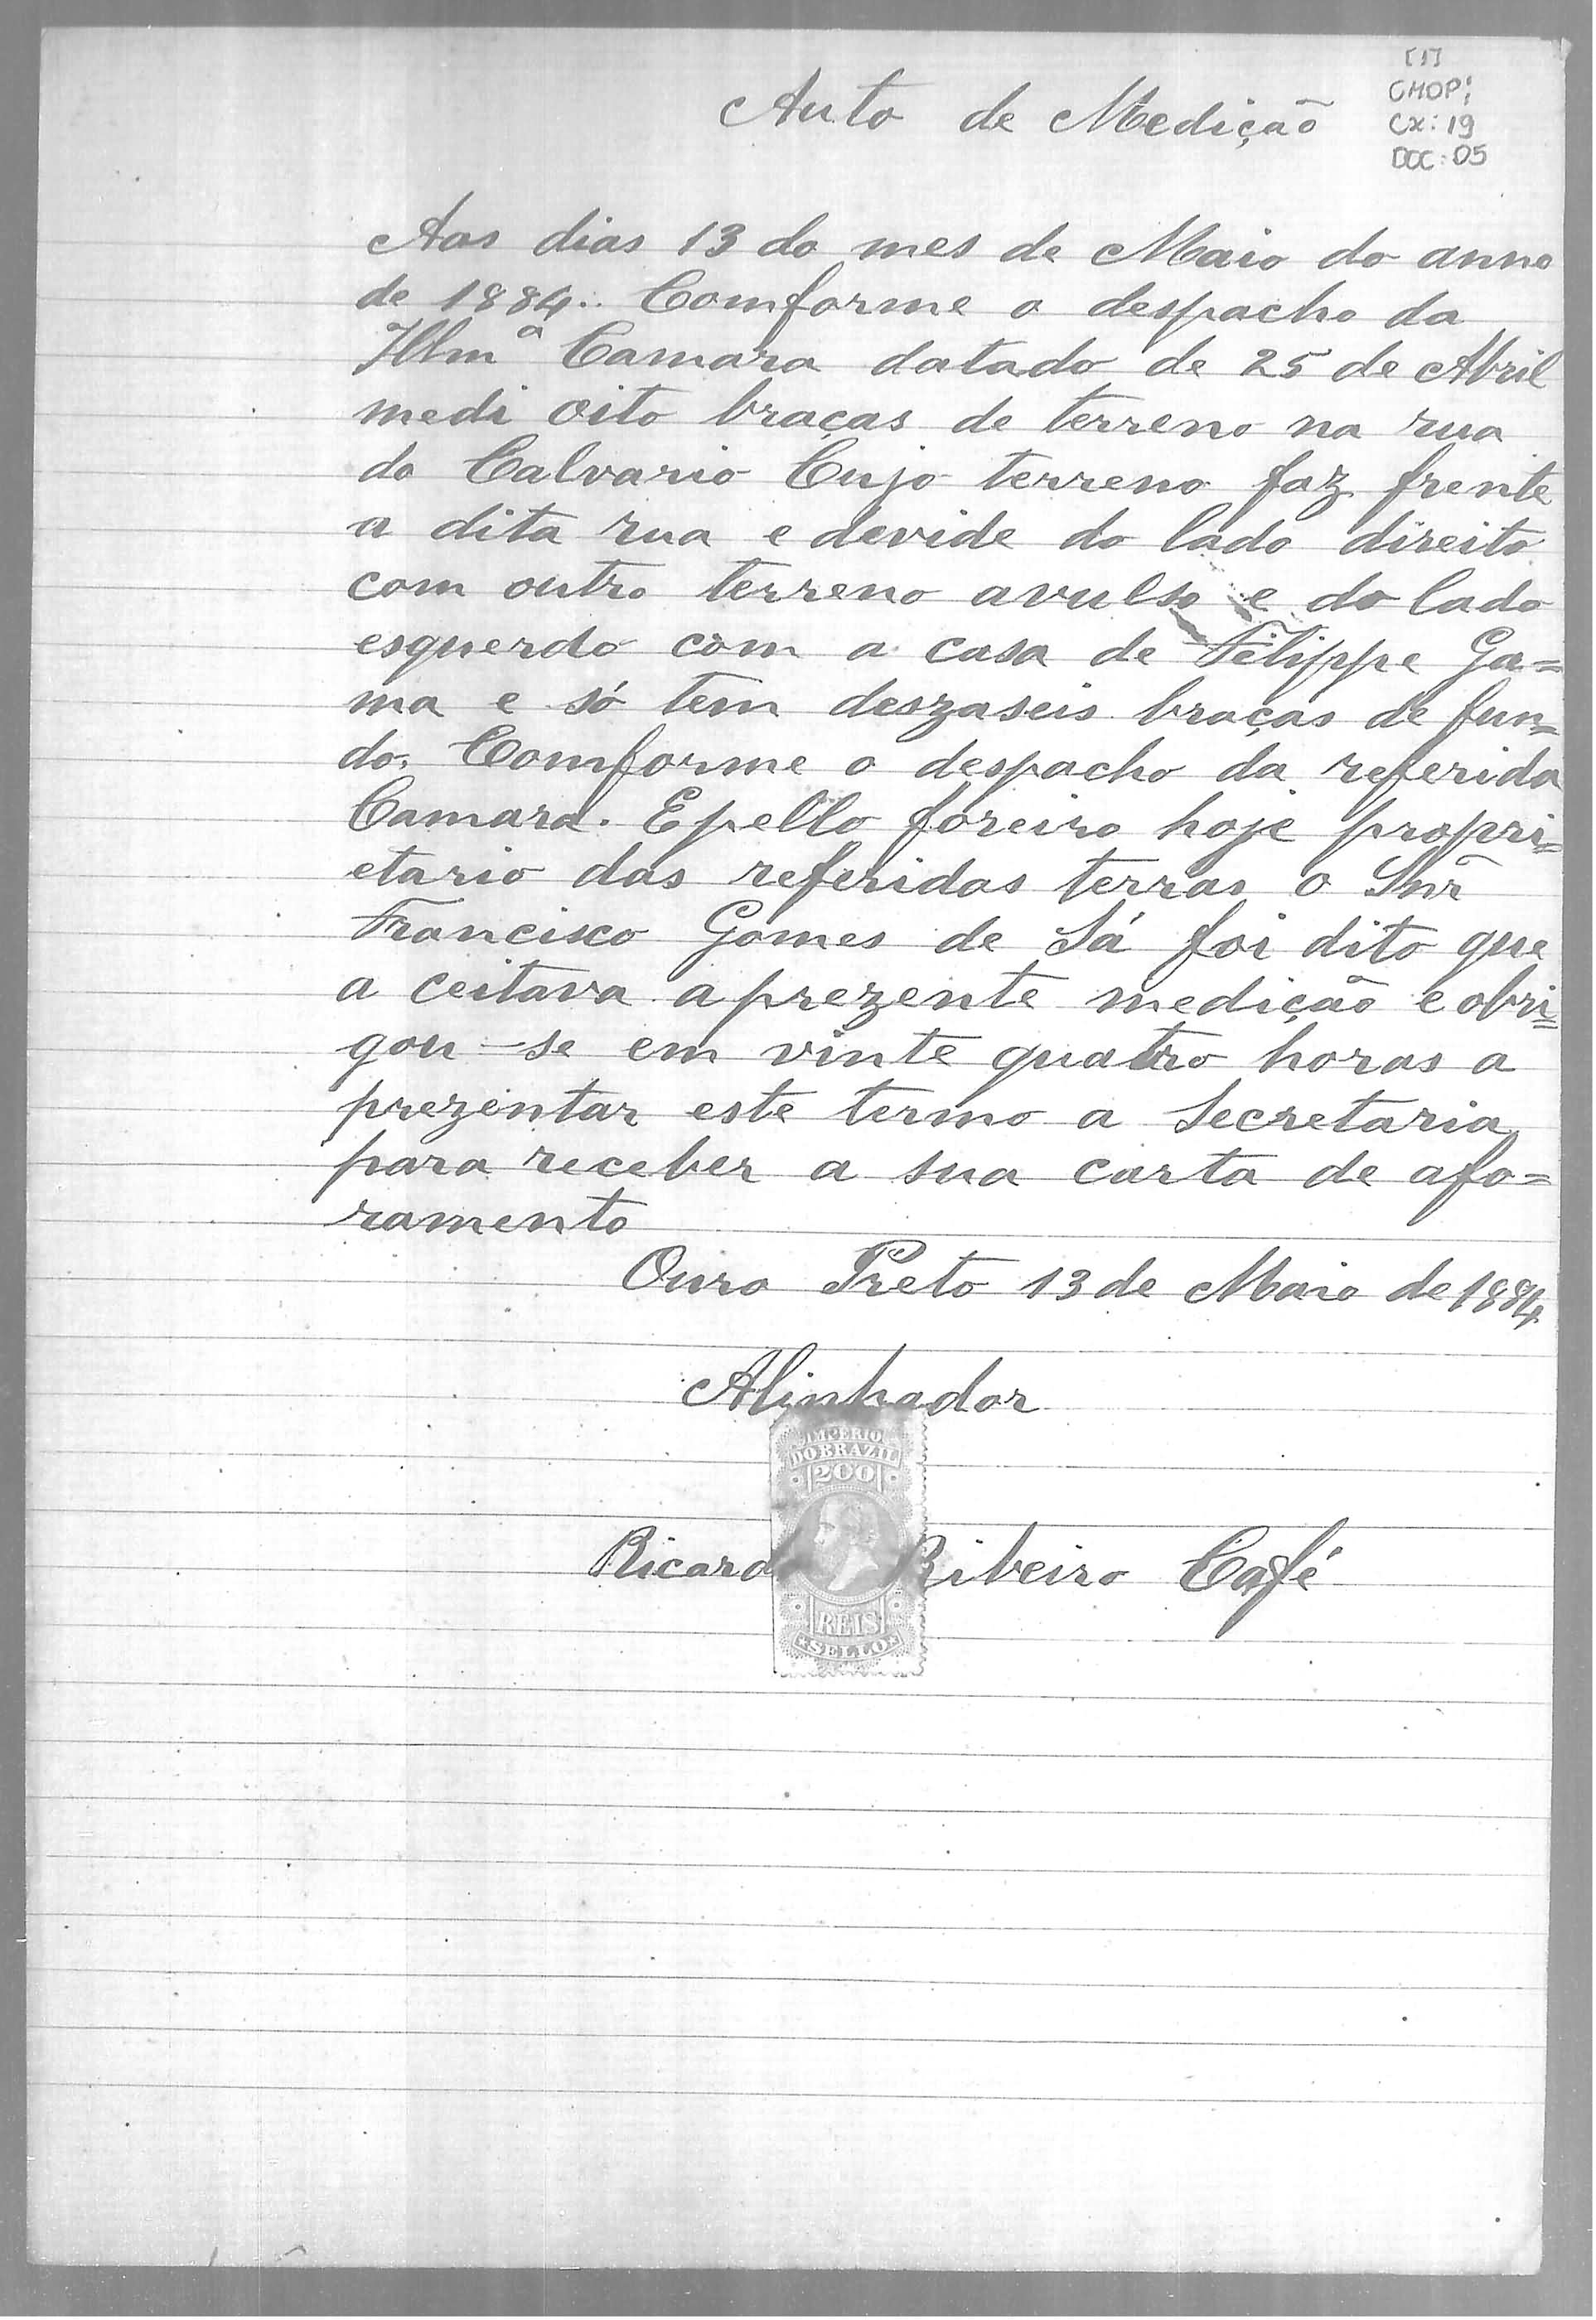 [1]
CMOP;
CX: 19
DOC: 05
Auto de Medição
Aos dias 13 do mes de Maio do anno
de 1884. Comforme o despacho da
Illmª Camara datado de 25 de Abril
medi oito braças de terreno na rua
do Calvario Cujo terreno faz frente
a dita rua e devide do lado direito
com outro terreno avulso e do lado
esquerdo com a casa de Felippe Ga=
ma e só tem deszaseis braças de fun=
do. Comforme o despacho da referida
Camara. E pello foreiro hoje propri=
etario das referidas terras o Snr
Francisco Gomes de Sá foi dito que
a ceitava a prezente medição e obri=
gou-se em vinte quatro horas a
prezentar este termo a Secretaria
para receber a sua carta de afo=
ramento
Ouro Preto 13 de Maio de 1884
Alinhador
IMPERIO
DO BRAZIL
200
Ricardo Ribeiro Café
REIS
SELLO